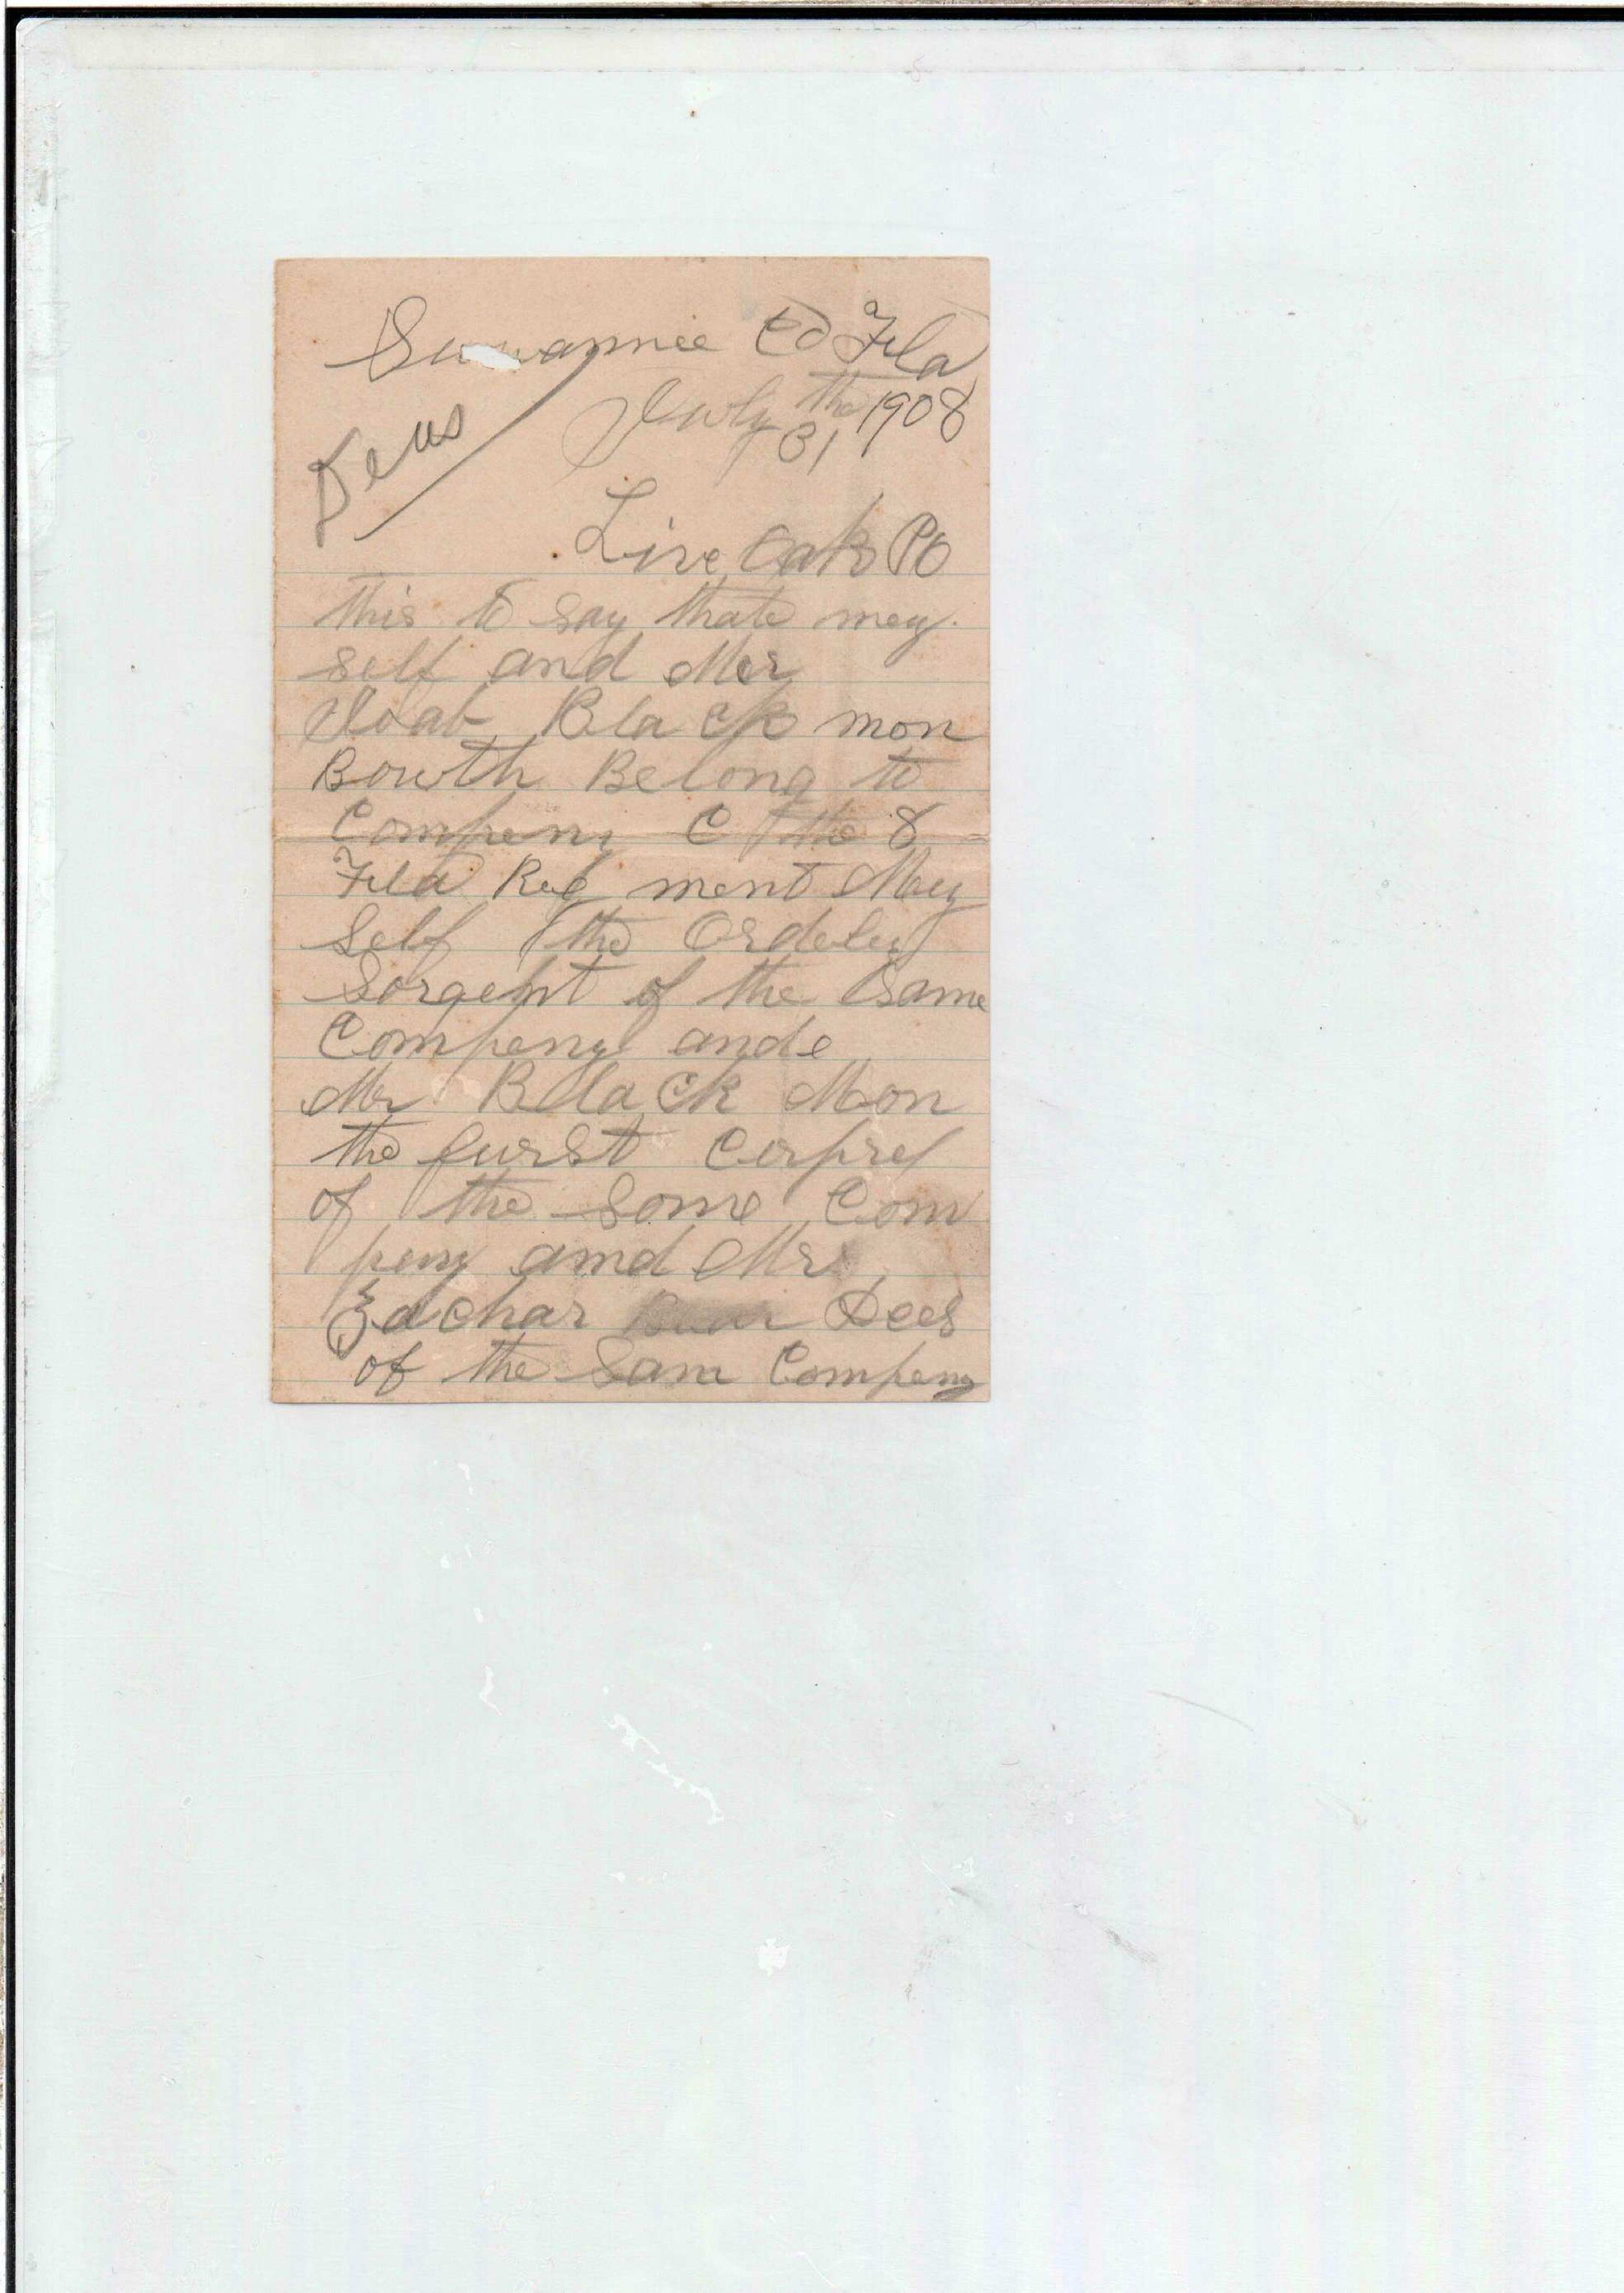 Suwannee Co Fla
July the 31 1908
Pens
Live Oak PO
this to say thate mey
self and Mer
Joab Black mon
Bowth Belong to
Compeny C the 8
Fla Reg ment Mey
Self the Ordeley
Sorgent of the Same
Compeny ande
Mr Black Mon
the furst Corprel
of the Some Com
peny amd Mr
Zachar Dees
of the Sam Compeny